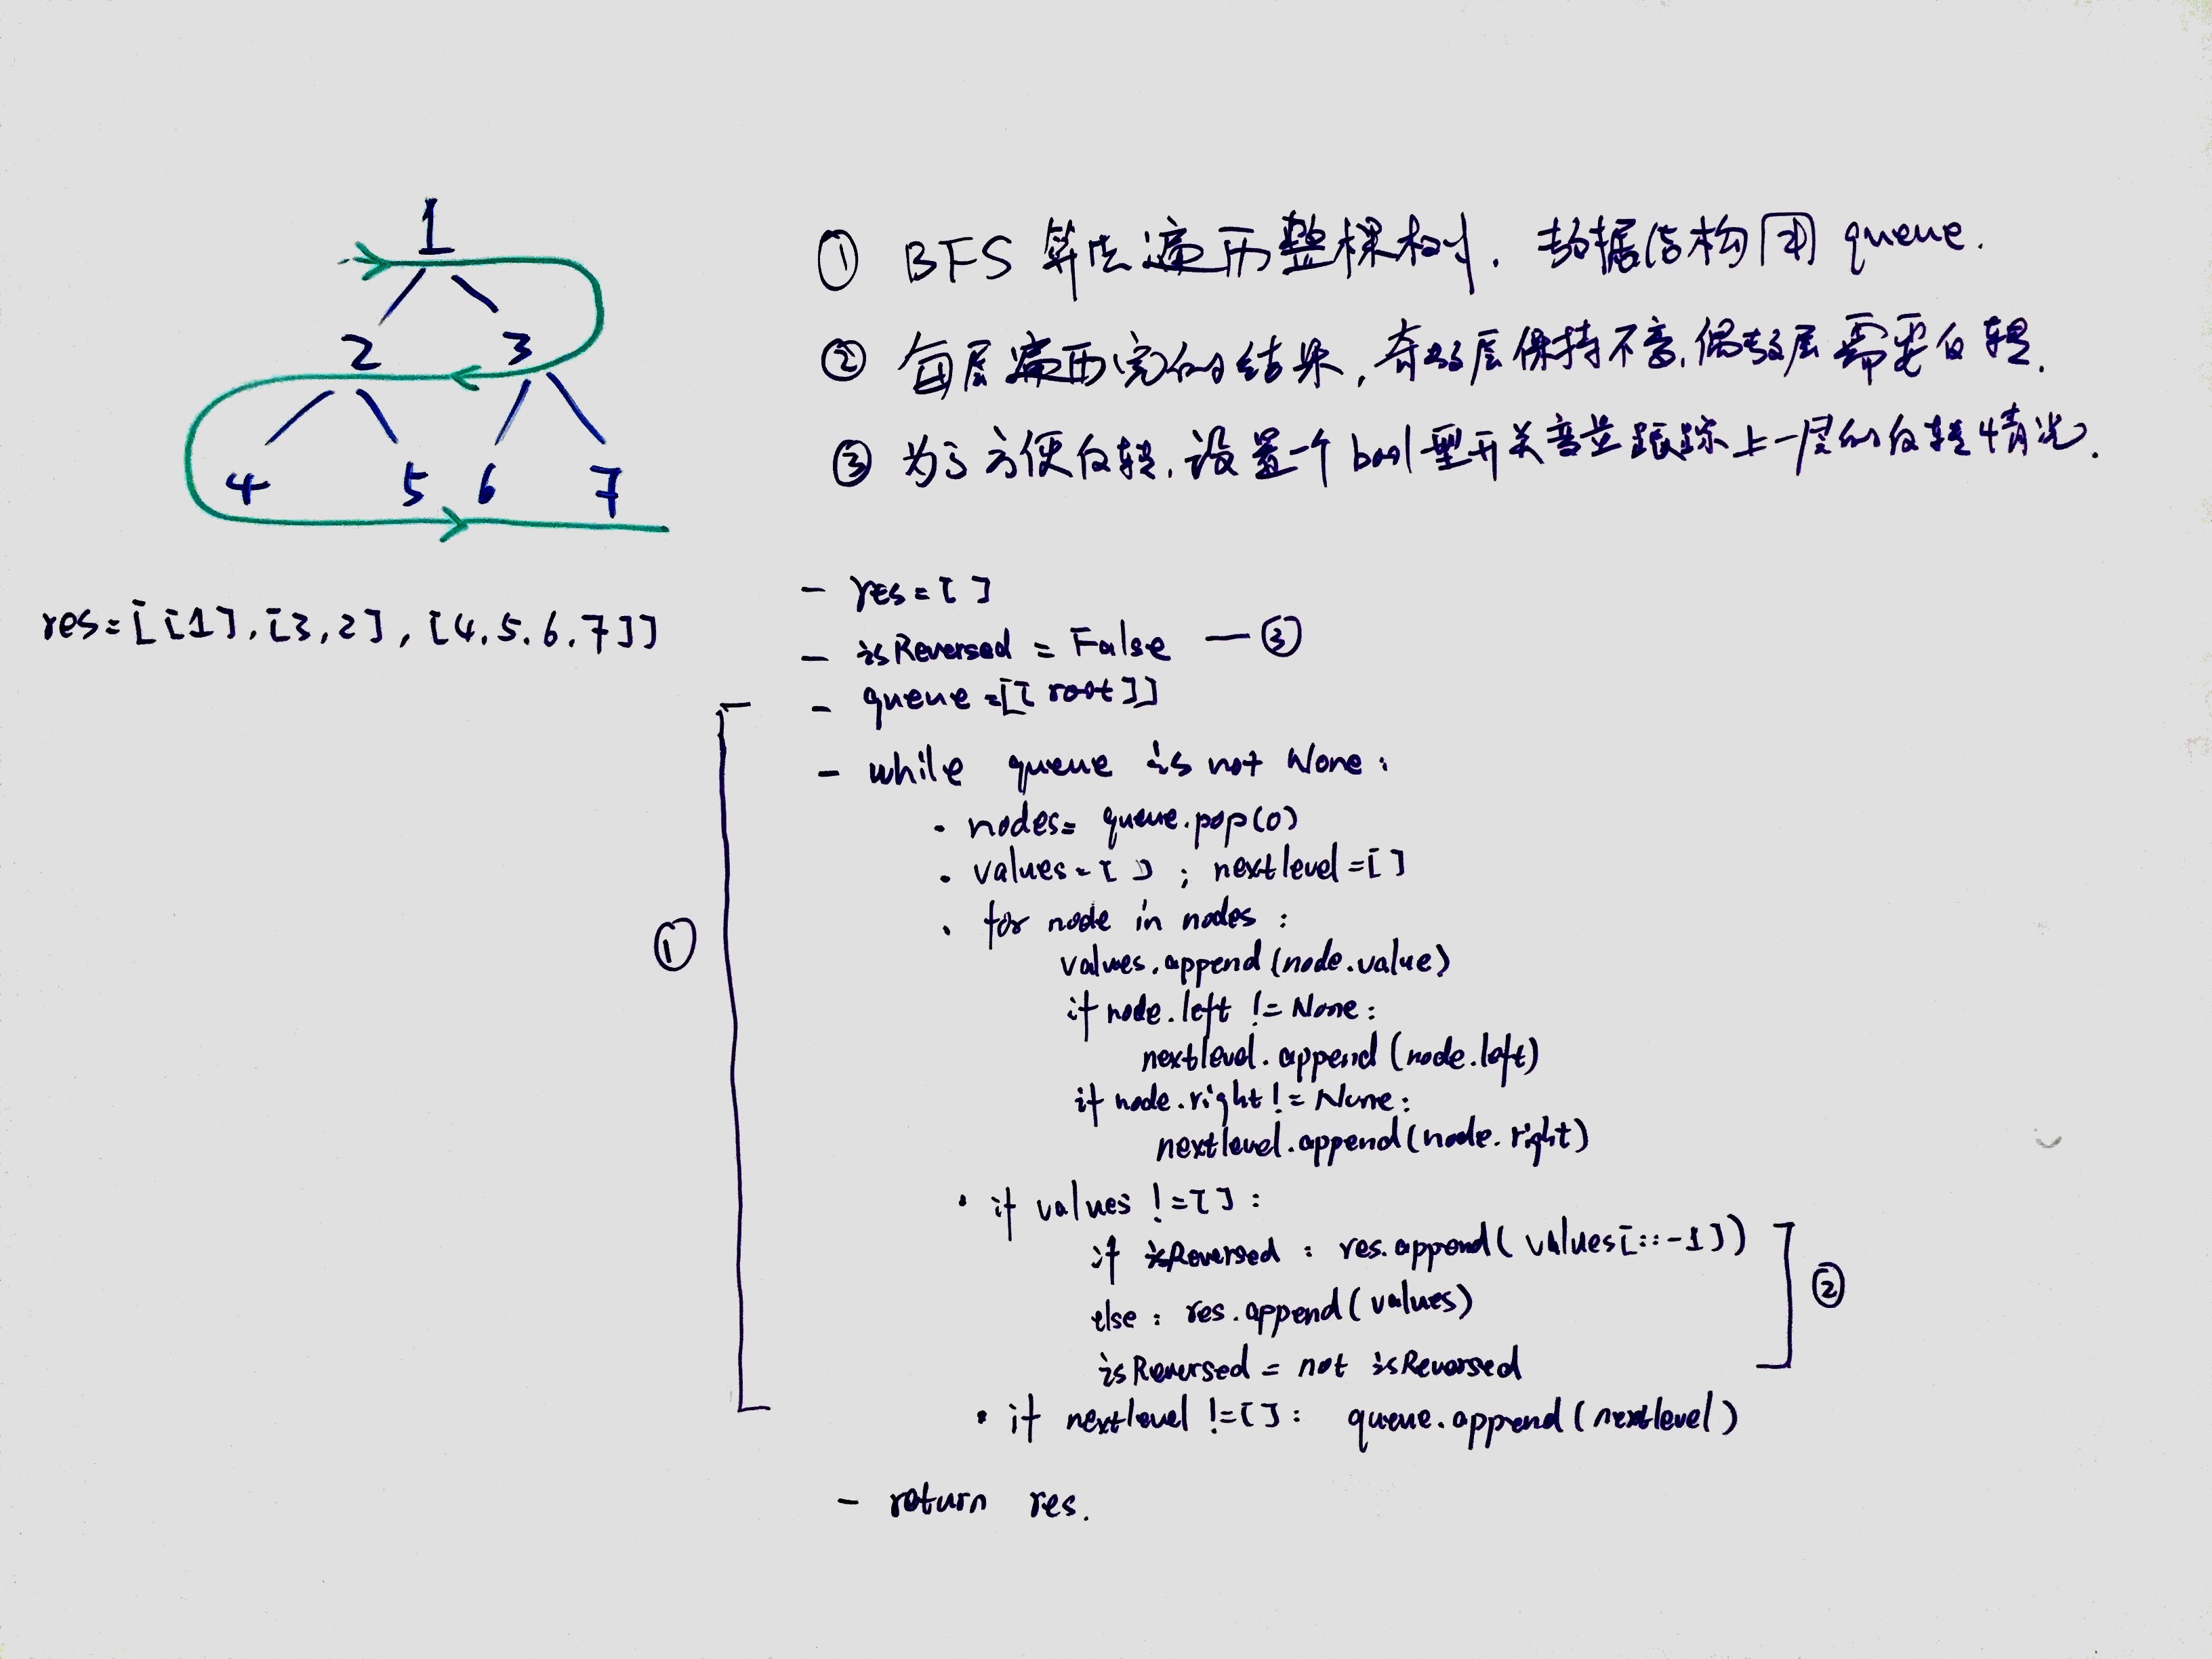 1
2 3
4 5 6 7
res=[[1],[3,2],[4.5.6.7]]
① BFS 算法遍历整棵树. 数据结构用 queue.
② 每层遍历完的结果,奇数层保持不变,偶数层需要反转.
③ 为了方便反转,设置一个bool型开关变量跟踪上一层的反转情况.
- res=[]
- isReversed = False —③
- queue=[[root]]
- while queue is not None:
· nodes= queue.pop(0)
· values=[] ; nextlevel=[]
· for node in nodes:
values.append(node.value)
if node.left != None:
nextlevel.append(node.left)
if node.right != None:
nextlevel.append(node.right)
· if values !=[]:
if isReversed : res.append(values[::-1])
else : res.append(values)
isReversed = not isReversed
②
· if nextlevel !=[]: queue.append(nextlevel)
①
- return res.